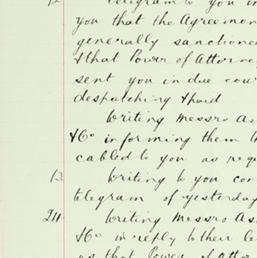 12 Telegram to you in
you that the Agreemen
generally sanctioned
& that Power of Attorne
sent you in due cour
despatching & paid
Writing Messrs As
& Co informing them
cabled to you as req
13 Writing to you con
telegram of yesterday
24 Writing Messrs As
& Co in reply to their le
us that Power of Attor